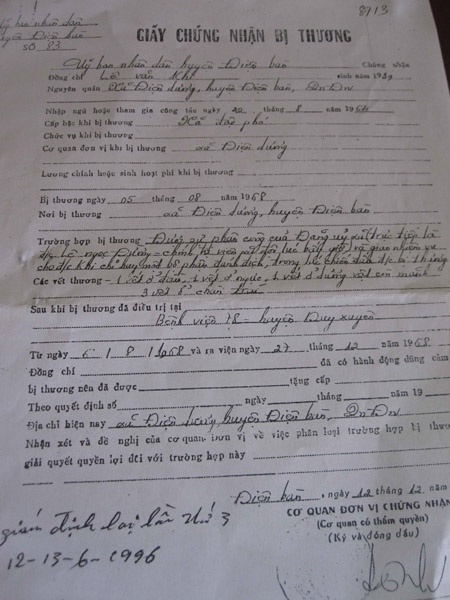 8713
Uỷ ban nhân dân
huyện Điện bàn
Số 83
GIẤY CHỨNG NHẬN BỊ THƯƠNG
Uỷ ban nhân dân huyện Điện bàn Chứng nhận
Đồng chí Lê văn Khi sinh năm 1939
Nguyên quán Xã Điện dương, huyện Điện bàn, QnĐn
Nhập ngũ hoặc tham gia công tác ngày 20 tháng 8 năm 1964
Cấp bậc khi bị thương Xã đội phó
Chức vụ khi bị thương
Cơ quan đơn vị khi bị thương xã Điện dương
Lương chính hoặc sinh hoạt phí khi bị thương
Bị thương ngày 05 tháng 08 năm 1968
Nơi bị thương xã Điện dương, huyện Điện bàn
Trường hợp bị thương Đúng sự phân công của Đảng uỷ xã trực tiếp là
đ/c Lê ngọc chính trị viên xã đội lúc bấy giờ và giao nhiệm vụ
cho đ/c Khi chỉ huy một bộ phận đánh địch, trong lúc chiến đấu đ/c bị thương
Các vết thương - 1 vết ở đầu, 1 vết ở ngực, 1 vết ở
3 vết ở chân
Sau khi bị thương đã điều trị tại
Bệnh viện 78 - huyện Duy xuyên
Từ ngày 6 / 8 / 1968 và ra viện ngày 27 tháng 12 năm 1968
Đồng chí đã có hành động dũng cảm
bị thương nên đã được tặng cấp
Theo quyết định số ngày tháng năm 19
Địa chỉ hiện nay xã Điện dương, huyện Điện bàn, QnĐn
Nhận xét và đề nghị của cơ quan đơn vị về việc phân loại trường hợp bị thương
giải quyết quyền lợi đối với trường hợp này
Điện bàn, ngày 12 tháng 12 năm
CƠ QUAN ĐƠN VỊ CHỨNG NHẬN
(Cơ quan có thẩm quyền)
(Ký và đóng dấu)
giám định lại lần thứ 3
12-13-6-1996